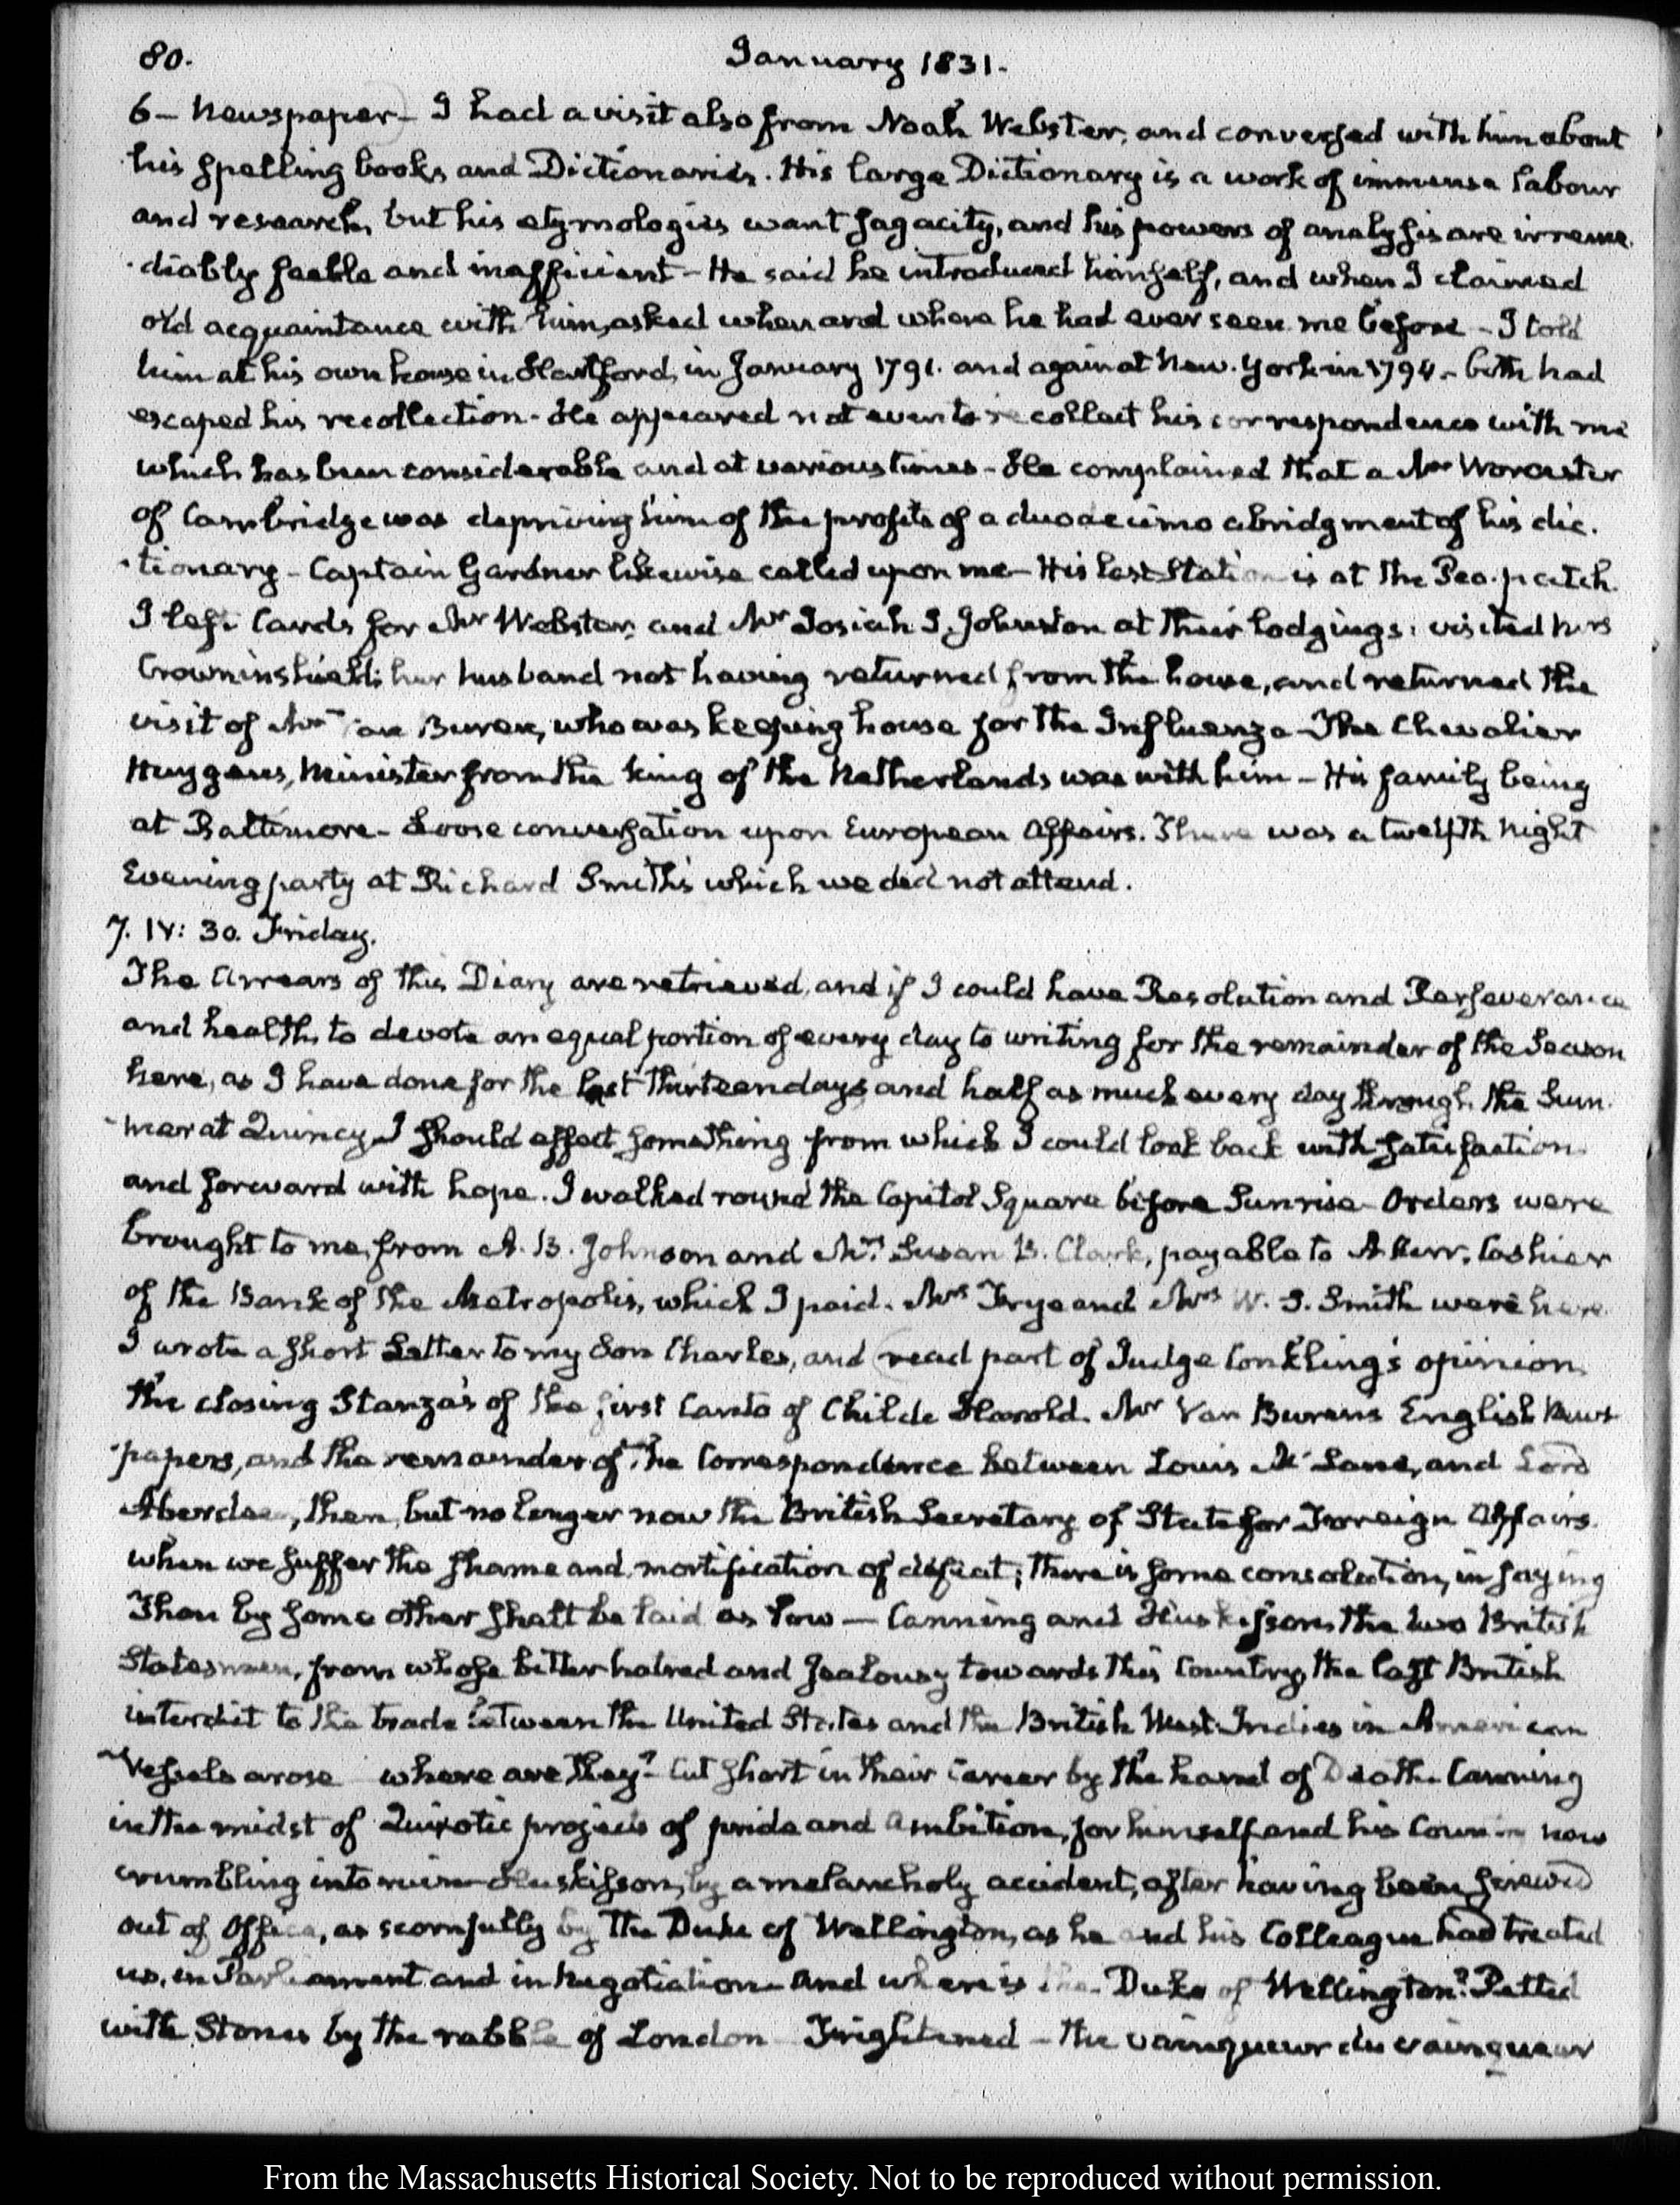 80.
January 1831.
6— Newspaper— I had a visit also from Noah Webster, and conversed with him about
his spelling books and Dictionaries. His large Dictionary is a work of immense labour
and research, but his etymologies want sagacity, and his powers of analysis are irreme-
-diably feeble and inefficient— He said he introduced himself, and when I claimed
old acquaintance with him, asked when and where he had ever seen me before— I told
him at his own house in Hartford, in January 1791. and again at New-York in 1794— both had
escaped his recollection— He appeared not even to recollect his correspondence with me
which has been considerable and at various times— He complained that a Mr Worcester
of Cambridge was depriving him of the profits of a duodecimo abridgment of his dic-
-tionary— Captain Gardner likewise called upon me— His last Station is at the Pea-patch.
I left Cards for Mr Webster, and Mr Josiah S. Johnston at their lodgings; visited Mrs
Crowninshield; her husband not having returned from the house, and returned the
visit of Mr Van Buren, who was keeping house for the Influenza— The Chevalier
Huygens, Minister from the King of the Netherlands was with him— His family being
at Baltimore— Loose conversation upon European Affairs. There was a twelfth Night
Evening party at Richard Smith's which we did not attend.
7. IV: 30. Friday.
The Arrears of this Diary are retrieved, and if I could have Resolution and Perseverance
and health, to devote an equal portion of every day to writing for the remainder of the Season
here, as I have done for the last thirteen days, and half as much every day through the Sum-
-mer at Quincy I should effect something from which I could look back with satisfaction
and forward with hope. I walked round the Capitol Square before Sunrise— Orders were
brought to me, from A. B. Johnson and Mrs Susan B. Clark, payable to A Kerr, Cashier
of the Bank of the Metropolis, which I paid. Mrs Frye and Mrs W. S. Smith were here
I wrote a short Letter to my Son Charles, and read part of Judge Conkling's opinion
the closing Stanza's of the first Canto of Childe Harold. Mr Van Buren's English News-
-papers, and the remainder of the Correspondence between Louis McLane, and Lord
Aberdeen, then, but no longer now the British Secretary of State for Foreign Affairs.
when we suffer the shame and mortification of defeat; there is some consolation, in saying
Thou by some other shalt be laid as low— Canning and Huskisson, the two British
Statesmen, from whose bitter hatred and jealousy towards this Country, the last British
interdict to the trade between the United States and the British West-Indies in American
Vessels arose where are they? Cut short in their Career by the hand of Death. Canning
in the midst of Quixotic projects of pride and Ambition, for himself and his Country now
crumbling into ruin— Huskisson, by a melancholy accident, after having been screwed
out of Office, as scornfully by the Duke of Wellington, as he and his Colleague had treated
us, in Parliament and in Negotiation— And where is the Duke of Wellington? Pelted
with Stones by the rabble of London— Frightened— the vainqueur du vainqueur
From the Massachusetts Historical Society. Not to be reproduced without permission.